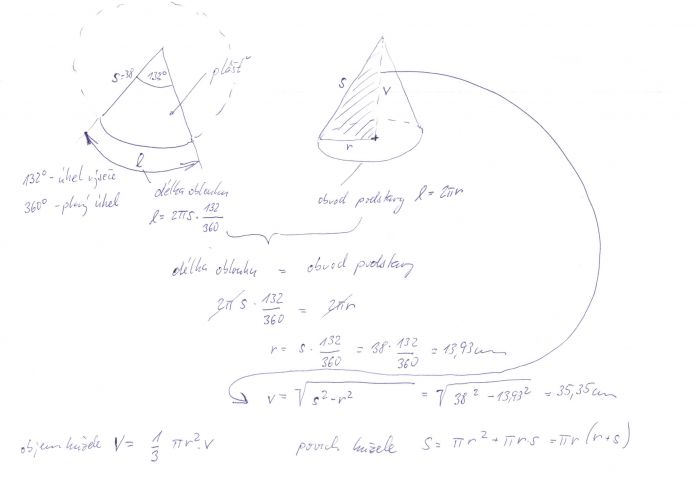 s=38
132°
plášť
l
s
v
r
132° - úhel výseče
360° - plný úhel
délka oblouku
l = 2πs · 132/360
obvod podstavy l = 2πr
délka oblouku = obvod podstavy
2π s · 132/360 = 2πr
r = s · 132/360 = 38 · 132/360 = 13,93cm
v = √(s² - r²) = √(38² - 13,93²) = 35,35cm
objem kužele V = 1/3 πr² · v
povrch kužele S = πr² + πrs = πr(r+s)